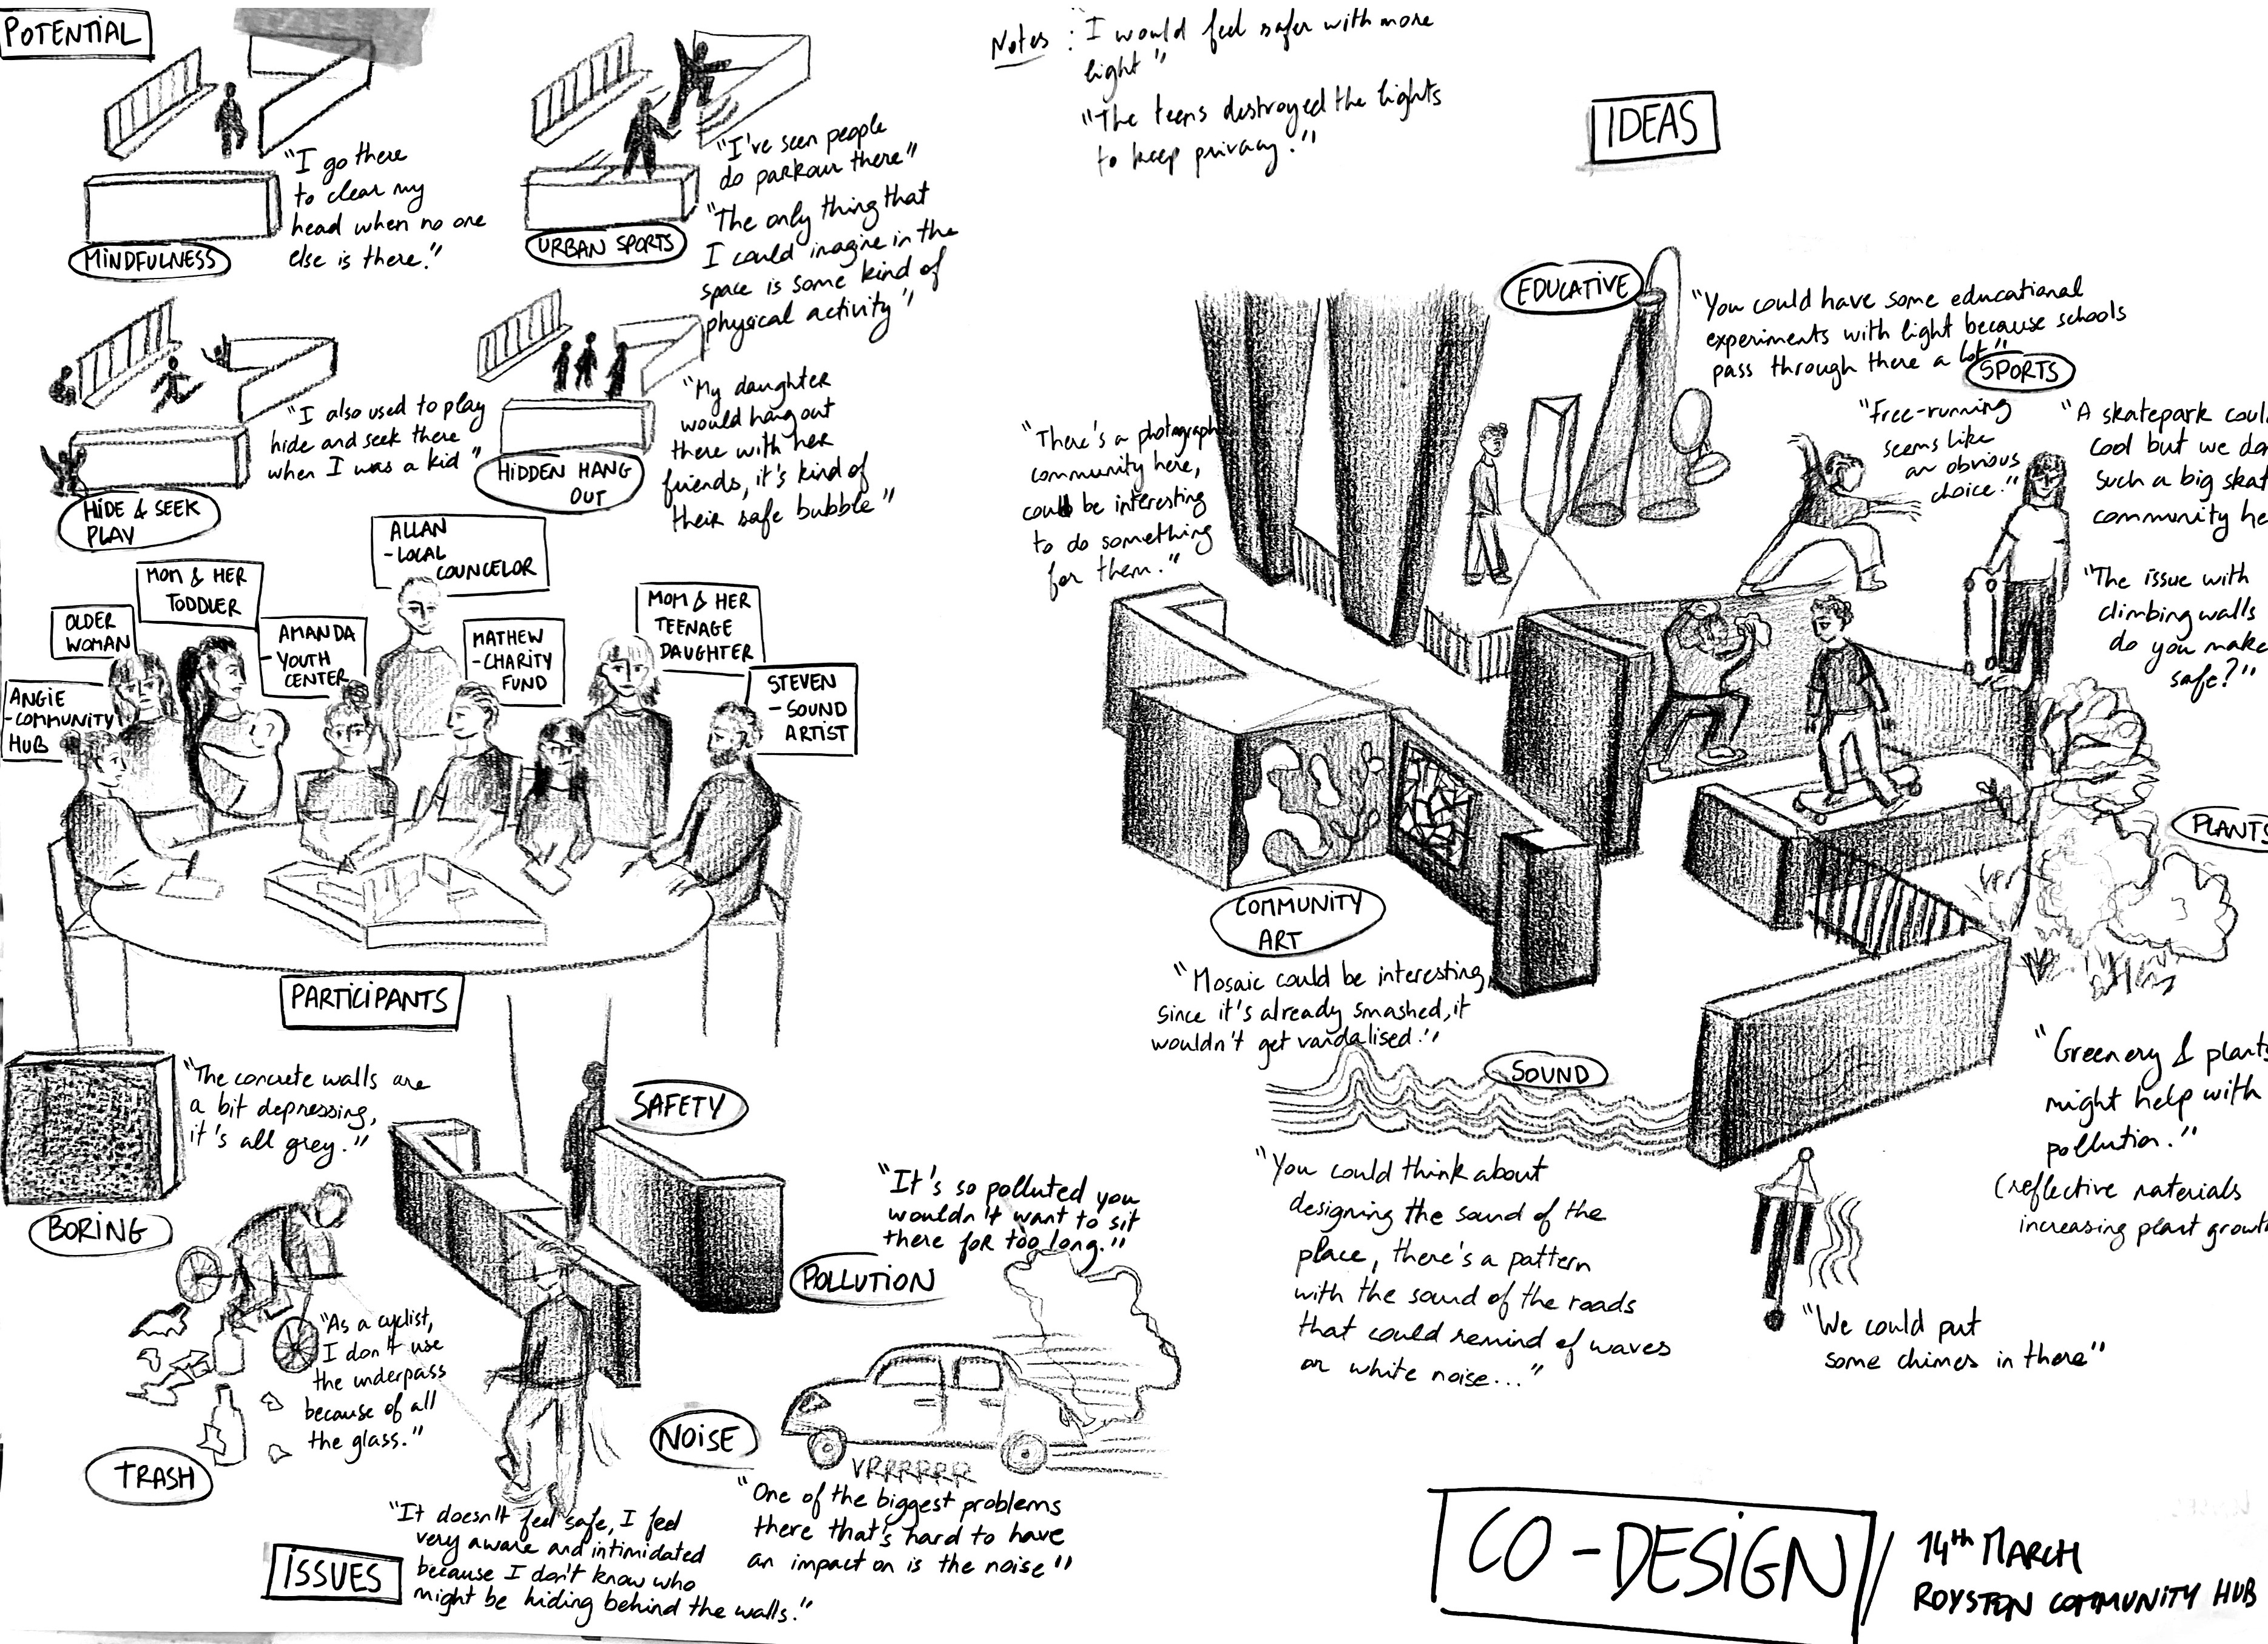 POTENTIAL
"I go there
to clear my
head when no one
else is there."
MINDFULNESS
"I've seen people
do parkour there"
"The only thing that
I could imagine in the
space is some kind of
physical activity"
URBAN SPORTS
"I also used to play
hide and seek there
when I was a kid"
HIDE & SEEK
PLAY
"My daughter
would hang out
there with her
friends, it's kind of
their safe bubble"
HIDDEN HANG
OUT
ANGIE
-COMMUNITY
HUB
OLDER
WOMAN
MOM & HER
TODDLER
AMANDA
- YOUTH
CENTER
ALLAN
-LOCAL
COUNCELOR
MATHEW
-CHARITY
FUND
MOM & HER
TEENAGE
DAUGHTER
STEVEN
- SOUND
ARTIST
PARTICIPANTS
"The concrete walls are
a bit depressing,
it's all grey."
BORING
SAFETY
"It's so polluted you
wouldn't want to sit
there for too long."
POLLUTION
"As a cyclist,
I don't use
the underpass
because of all
the glass."
TRASH
NOISE
VRRRRRR
"One of the biggest problems
there that's hard to have
an impact on is the noise"
"It doesn't feel safe, I feel
very aware and intimidated
because I don't know who
might be hiding behind the walls."
ISSUES
Notes : "I would feel safer with more
light"
"The teens destroyed the lights
to keep privacy."
IDEAS
EDUCATIVE
"You could have some educational
experiments with light because schools
pass through there a lot"
SPORTS
"Free-running
seems like
an obvious
choice."
"A skatepark
cool but we
such a big
community
"The issue with
climbing walls
do you make
safe?"
"There's a
community here,
could be interesting
to do something
for them."
COMMUNITY
ART
"Mosaic could be interesting,
since it's already smashed, it
wouldn't get vandalised."
PLANTS
"Greenery & plants
might help with
pollution."
(reflective materials
increasing plant
SOUND
"You could think about
designing the sound of the
place, there's a pattern
with the sound of the roads
that could remind of waves
or white noise..."
"We could put
some chimes in there"
CO-DESIGN // 14th MARCH
ROYSTON COMMUNITY HUB